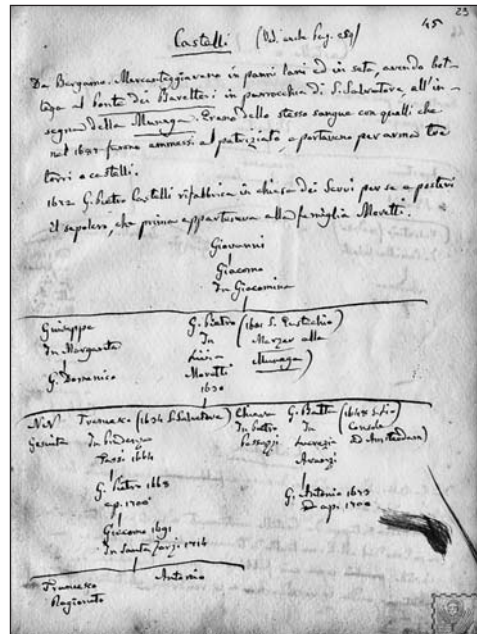 23
45
Castelli (Vedi anche pag. 259)
Da Bergamo. Mercanteggiavano in panni lani ed in seta, avendo bot-
tega al ponte dei Baretteri in parrocchia di S. Salvatore, all'in-
segna della Munega. Erano dello stesso sangue con quelli che
nel 1687 furono ammessi al patriziato, e portavano per arma tre
torri o castelli.
1672 G. Pietro Castelli rifabbrica in chiesa dei Servi per se e posteri
il sepolcro, che prima apparteneva alla famiglia Moretti.
Giovanni
Giacomo
In Giacomina
Giuseppe
In Margarita
G. Domenico
G. Pietro (1601 S. Eustachio
In Marzer alla
Livia Munega)
Moretti
1630
N.N.
Gesuita
Francesco (1634 S. Salvatore)
In Prudenza
Tassi 1664
G. Pietro 1668
ap. 1700
Giacomo 1691
In Santa 1714
Francesco
Ragionato
Antonio
Chiara
In Pietro
G. Batta (1648 S. Lio
In Console
Lucrezia Ad Amsterdam)
G. Antonio 1673
ap. 1700